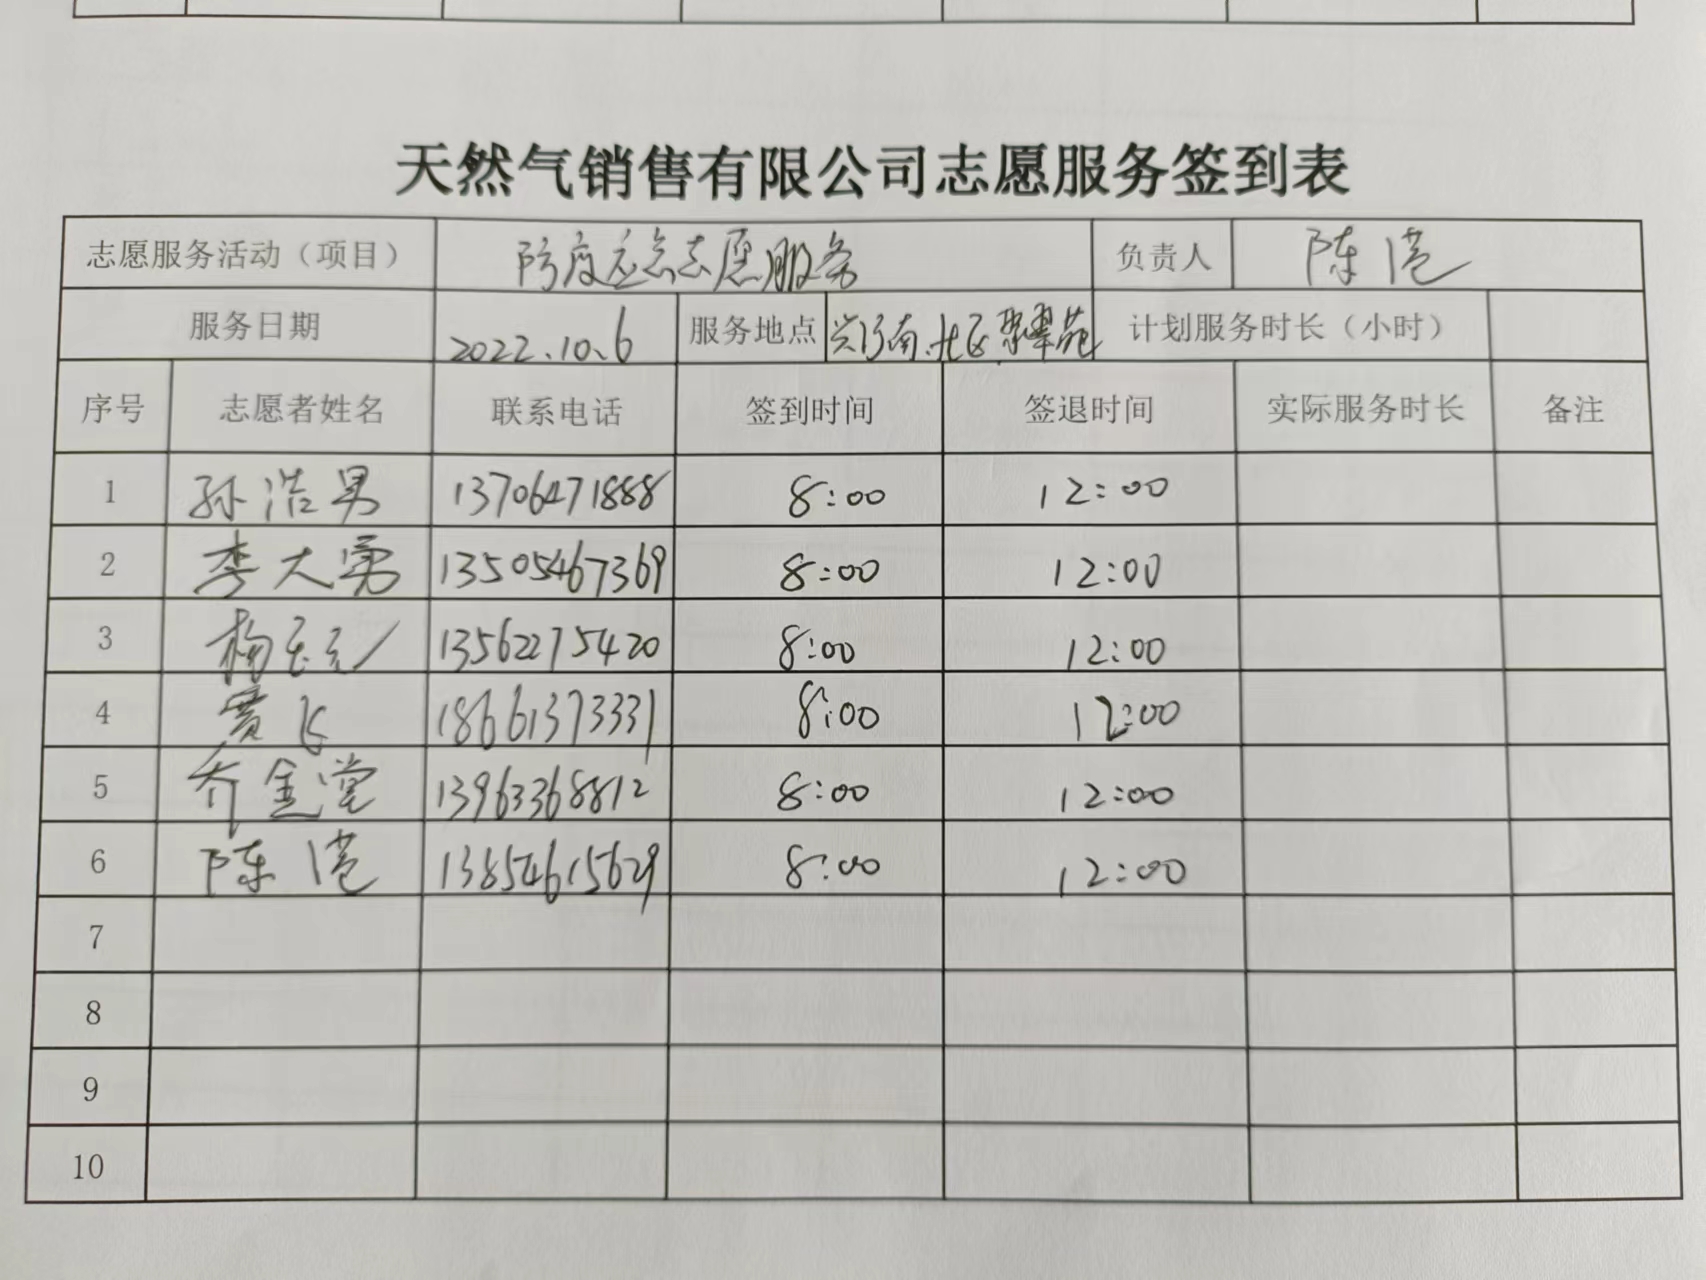 天然气销售有限公司志愿服务签到表
志愿服务活动（项目） 防疫应急志愿服务 负责人 陈港
服务日期 2022.10.6 服务地点 兴河南.北区翠苑 计划服务时长（小时）
序号 志愿者姓名 联系电话 签到时间 签退时间 实际服务时长 备注
1 孙浩男 13706471888 8:00 12:00
2 李大勇 13505467369 8:00 12:00
3 杨 13562275420 8:00 12:00
4 黄飞 18661373331 8:00 12:00
5 乔金堂 13963368812 8:00 12:00
6 陈港 13854615629 8:00 12:00
7
8
9
10